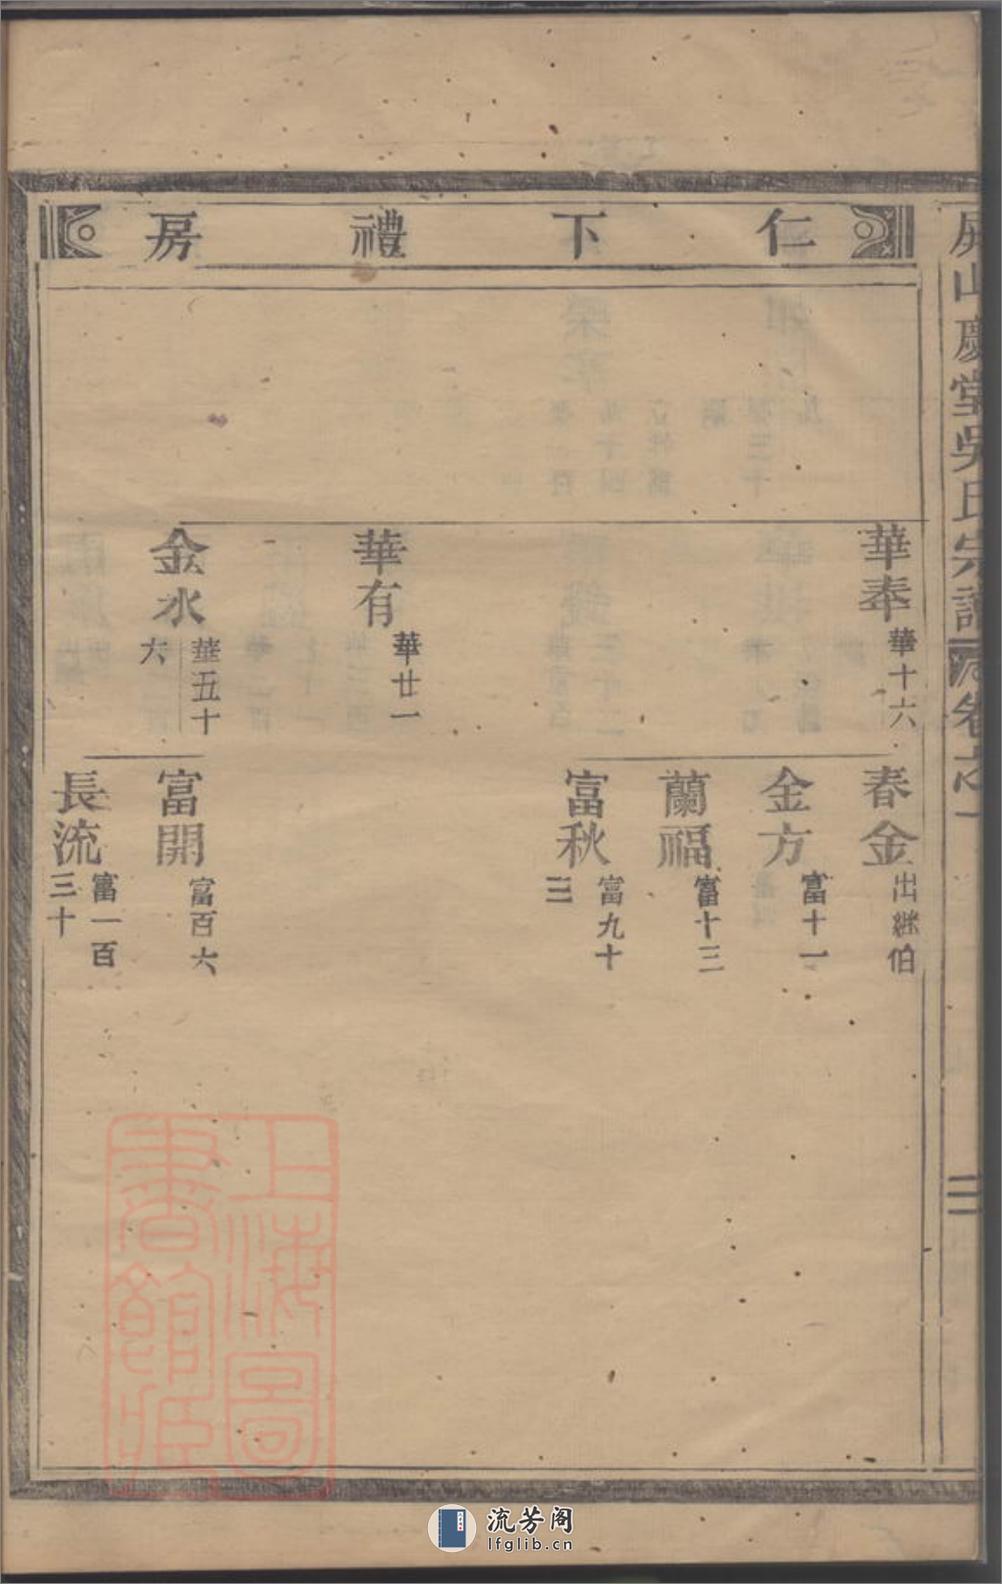 屏山慶堂吳氏宗譜
卷之一
二
仁下禮房
華奉
華十六
華有
華廿一
金水
華五十
六
春金
出継伯
金方
富十一
蘭福
富十三
富秋
富九十
三
富開
富百六
長流
富一百
三十
上海圖
書館藏
流芳阁
lfglib.cn